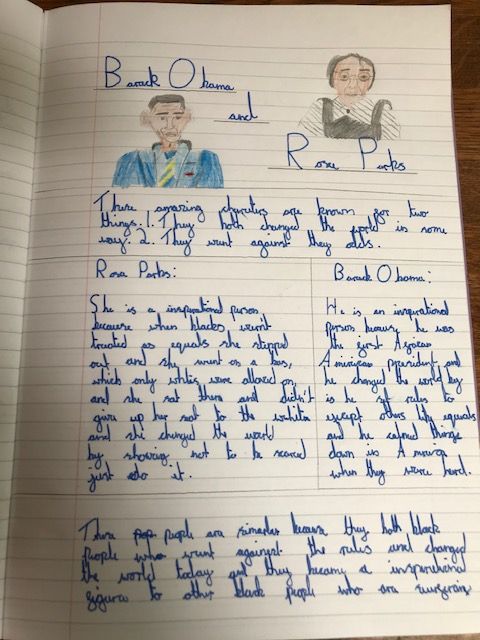 Barack Obama
and
Rosa Parks
These amazing charcters are known for two
things. 1. They both changed the world in some
way. 2. They went against they odds.
Rosa Parks:
She is a inspirational person
because when blacks weren't
treated as equals she stepped
out and she went on a bus,
which only whites were allowed on
and she sat there and didn't
give up her sat to the whites
and she changed the world
by showing not to be scared
just do it.
Barack Obama:
He is an inspirational
person because he was
the first African
American president and
he changed the world by
is he set rules to
except others like equals
and he calmed things
down in America
when they were hard.
These people are similar because they both black
people who went against the rules and changed
the world today and they became a inspirational
figures to other black people who are